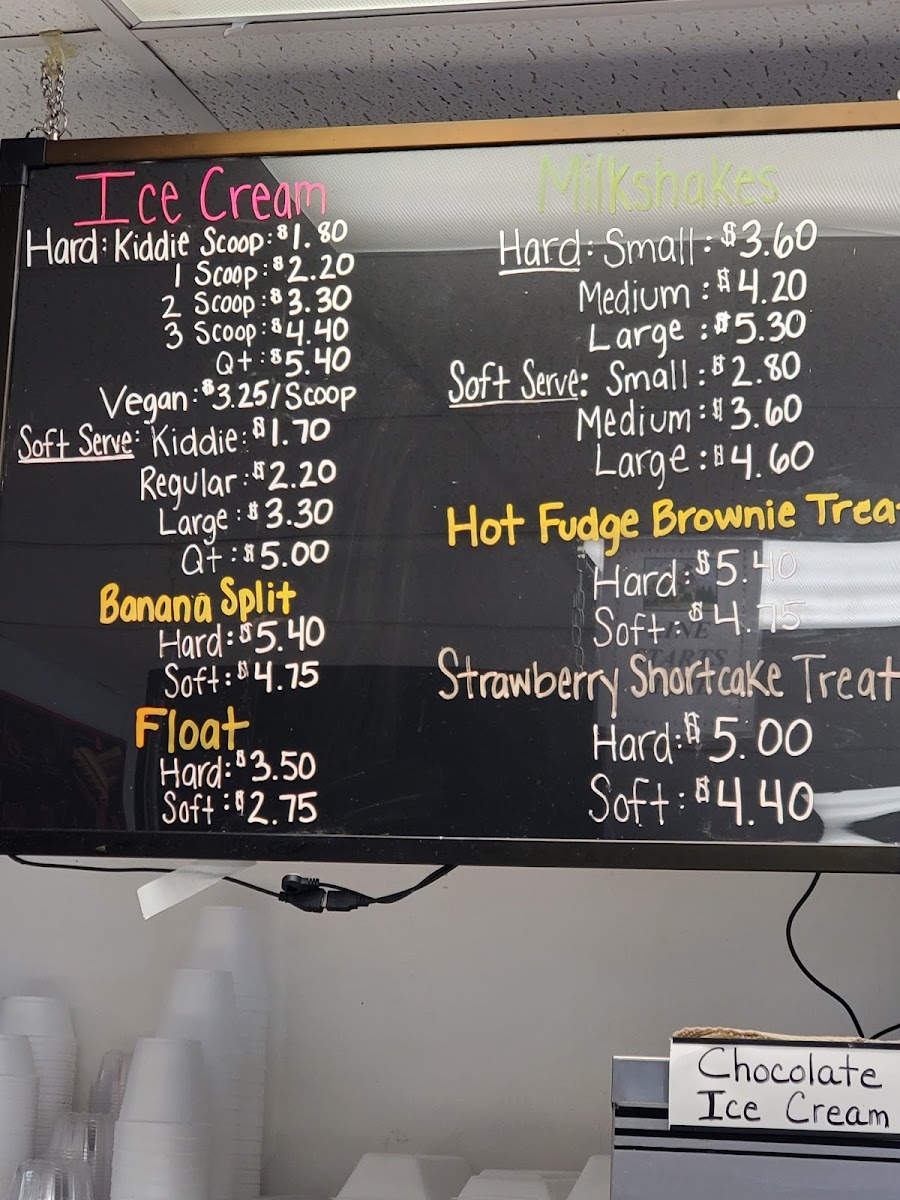 Ice Cream
Hard: Kiddie Scoop: $1.80
1 Scoop: $2.20
2 Scoop: $3.30
3 Scoop: $4.40
Qt: $5.40
Vegan: $3.25/Scoop
Soft Serve: Kiddie: $1.70
Regular: $2.20
Large: $3.30
Qt: $5.00
Banana Split
Hard: $5.40
Soft: $4.75
Float
Hard: $3.50
Soft: $2.75
Milkshakes
Hard: Small: $3.60
Medium: $4.20
Large: $5.30
Soft Serve: Small: $2.80
Medium: $3.60
Large: $4.60
Hot Fudge Brownie Trea
Hard: $5.40
Soft: $4.75
Strawberry Shortcake Treat
Hard: $5.00
Soft: $4.40
Chocolate
Ice Cream